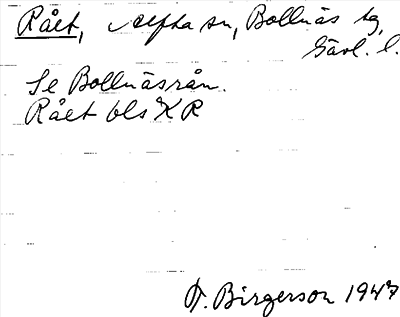 Rået, Alfta sn, Bollnäs tg,
Gävl. l.
Se Bollnäsrån.
Rået bls KR
F. Birgerson 1947